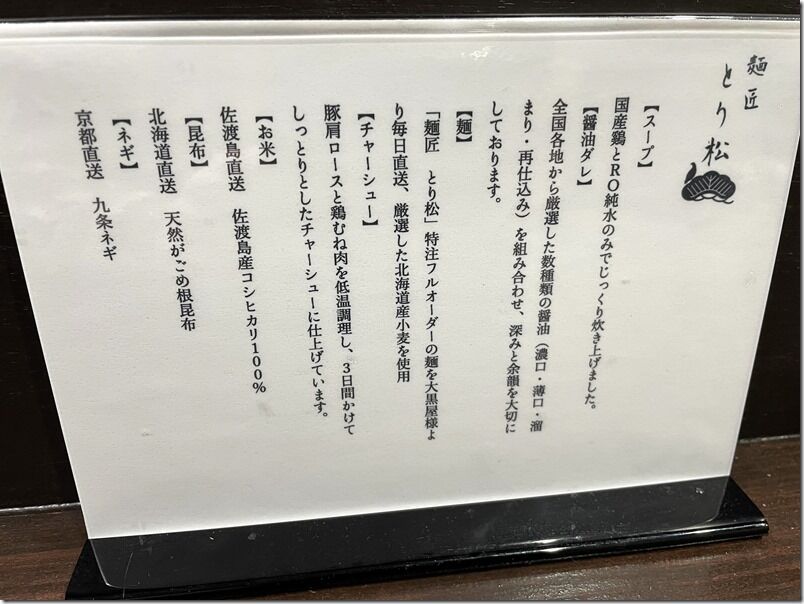 麺匠
とり松
【スープ】
国産鶏とRO純水のみでじっくり炊き上げました。
【醤油ダレ】
全国各地から厳選した数種類の醤油（濃口・薄口・溜
まり・再仕込み）を組み合わせ、深みと余韻を大切に
しております。
【麺】
「麺匠　とり松」特注フルオーダーの麺を大黒屋様よ
り毎日直送、厳選した北海道産小麦を使用
【チャーシュー】
豚肩ロースと鶏むね肉を低温調理し、３日間かけて
しっとりとしたチャーシューに仕上げています。
【お米】
佐渡島直送　佐渡島産コシヒカリ１００％
【昆布】
北海道直送　天然がごめ根昆布
【ネギ】
京都直送　九条ネギ